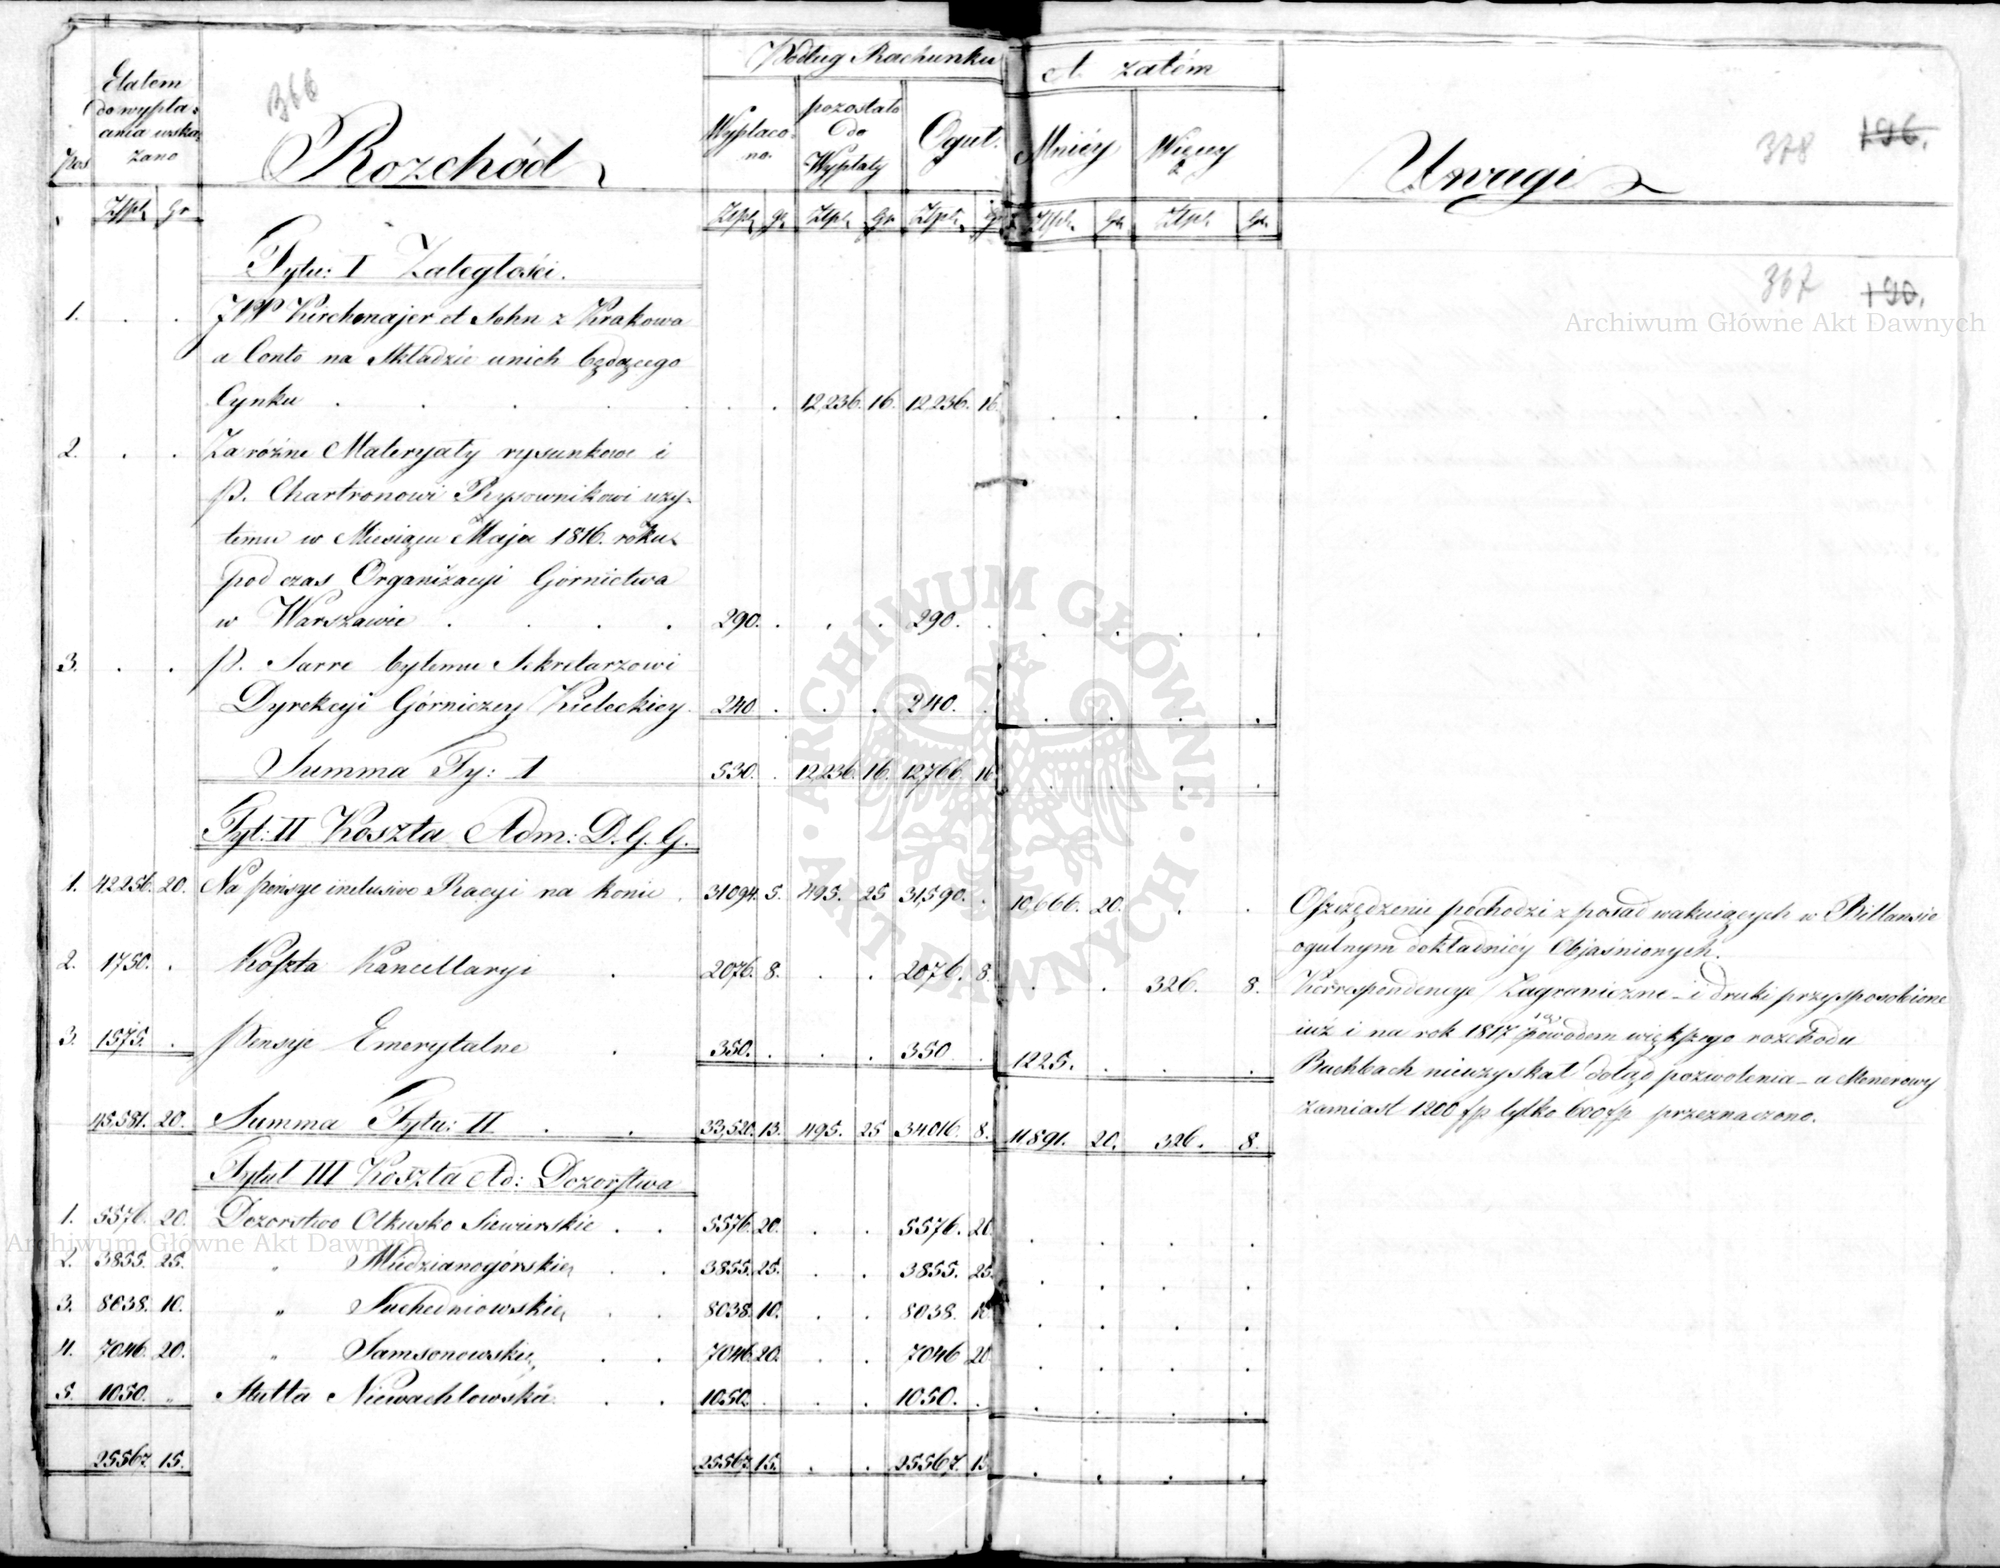 Według Rachunku A zatém
Etatem
do wypła-
ania wska-
zano
Pos
366
Rozchód
Wypłaco-
no.
pozostało
do
Wypłaty
Oguł.
Mniéy
Więcey
Uwagi
378 196.
Złpl. Gr Złpl. gr. Złpl. Gr Złpl. gr Złpl. Gr. Złpl. Gr.
Tytu: I Zaległości.
367 190.
1. . . JPP Kirchmajer et John z Krakowa
a Conto na Składzie unich będącego
Cynku . . . . . . . 12,236. 16. 12,236. 16. . . . .
2. . . Za różne Materyały rysunkowe i
P. Chartronowi Rysownikowi uży-
temu w Miesiącu Maja 1816. roku
pod czas Organizacyi Górnictwa
w Warszawie . . . . 290. . . . 290. . . . . .
3. . . P. Sarre byłemu Sekretarzowi
Dyrekcyi Górniczey Kieleckiey. 240 . . . 240. . . . . .
Summa Ty: I 530. . 12,236. 16. 12,766. 16 . . . .
Tyt: II Koszta Adm: D. G. G.
1. 42256. 20. Na pensye inclusive Racyi na konie . 31094. 5. 495. 25 31,590. . 10,666. 20. . . Oszczędzenie pochodzi z posad wakuiących w Billansie
ogulnym dokładniéy Objaśnionych.
2. 1750. . Koszta Kancellaryi . 2076. 8. . . 2076. 8. . . 326. 8. Korrespondencye Zagraniczne i druki przysposobione
iuż i na rok 1817 są powodem większego rozchodu
3. 1575. . Pensye Emerytalne . 350. . . . 350 . 1225. . . . Bachbach nieuzyskał dotąd pozwolenia a Monerowy
zamiast 1200 fp tylko 600 fp przeznaczono.
45,581. 20. Summa Tytu: II . . 33,520. 13. 495. 25 34016. 8. 11891. 20. 326. 8.
Tytuł III Koszta Ad: Dozorstwa
1. 5576. 20. Dozorstwo Olkusko Siewierskie . . 5576. 20. . . 5576. 20 . . . .
2. 3855. 25. " Miedzianogórskie . . 3855. 25. . . 3855. 25. . . . .
3. 8038. 10. " Suchedniowskie . . 8038. 10. . . 8038. 10. . . . .
4. 7046. 20. " Samsonowskie . . 7046. 20. . . 7046 20 . . . .
5. 1050. " Hutta Niewachlowska . . 1050. . . . 1050. . . . . .
25567. 15. 25567. 15. . . 25567. 15 . . . .
Archiwum Główne Akt Dawnych
Archiwum Główne Akt Dawnych
ARCHIWUM GŁÓWNE · AKT DAWNYCH ·